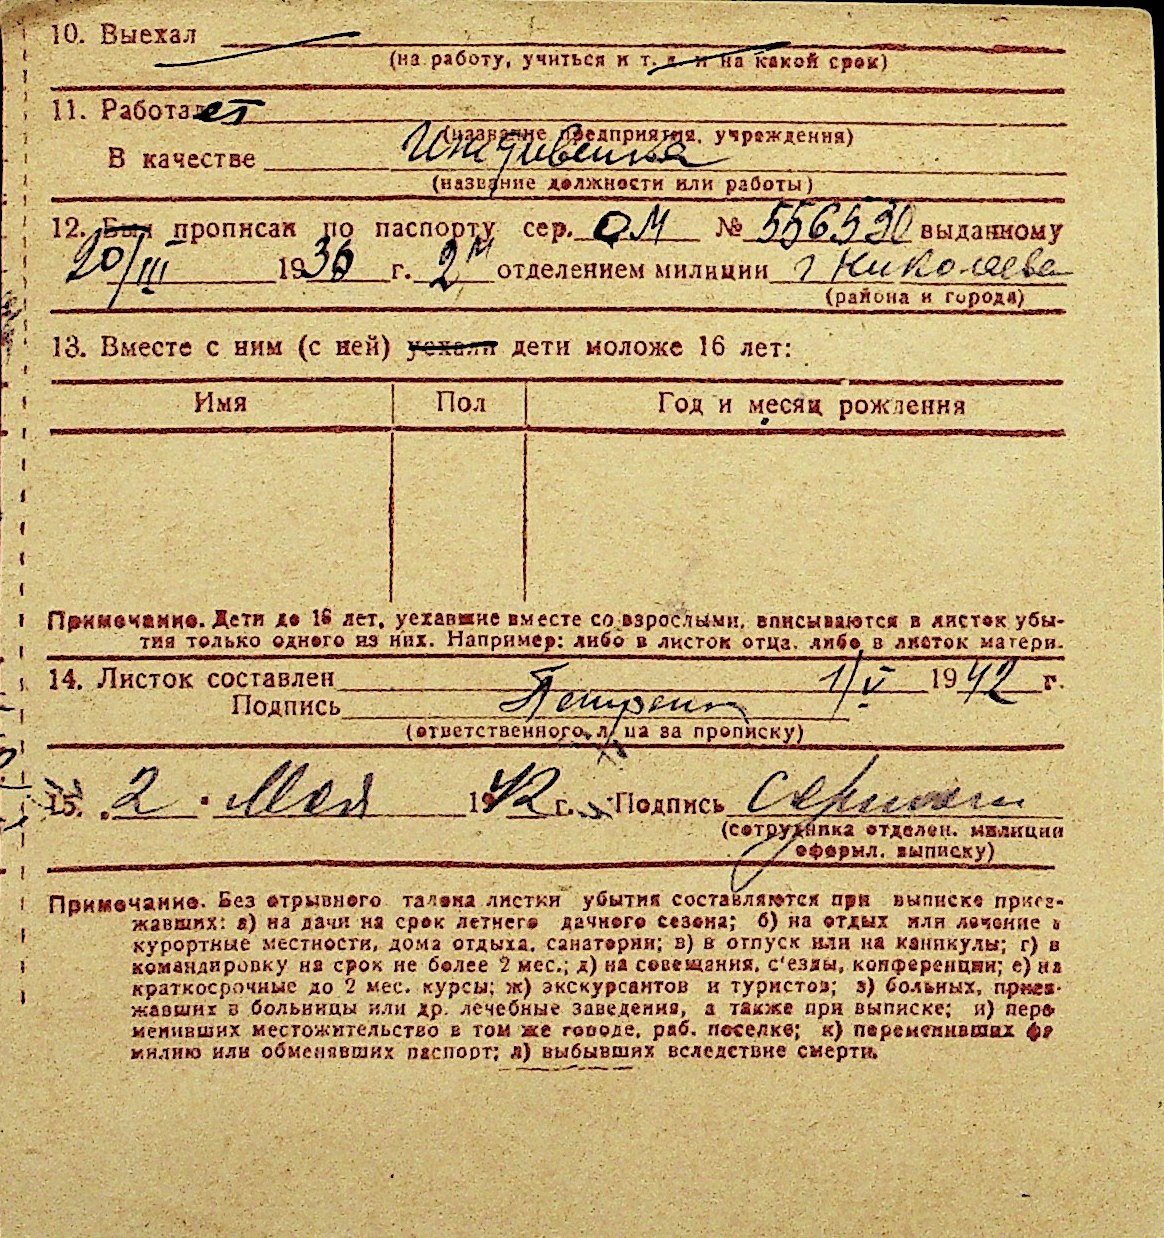 10. Выехал
(на работу, учиться и т. д. и на какой срок)
11. Работает
(название предприятия, учреждения)
В качестве Иждивенка
(название должности или работы)
12. Был прописан по паспорту сер. ОМ № 556530 выданному
20/III 1936 г. 2м отделением милиции г Николаева
(района и города)
13. Вместе с ним (с ней) уехали дети моложе 16 лет:
Имя Пол Год и месяц рождения
Примечание. Дети до 16 лет, уехавшие вместе со взрослыми, вписываются в листок убы-
тия только одного из них. Например: либо в листок отца, либо в листок матери.
14. Листок составлен 1/V 1942 г.
Подпись
(ответственного лица за прописку)
15. 2 Мая 1942 г. Подпись
(сотрудника отделен. милиции
оформл. выписку)
Примечание. Без отрывного талона листки убытия составляются при выписке приез-
жавших: а) на дачи на срок летнего дачного сезона; б) на отдых или лечение в
курортные местности, дома отдыха, санатории; в) в отпуск или на каникулы; г) в
командировку на срок не более 2 мес.; д) на совещания, с'езды, конференции; е) на
краткосрочные до 2 мес. курсы; ж) экскурсантов и туристов; з) больных, приез-
жавших в больницы или др. лечебные заведения, а также при выписке; и) пере
менивших местожительство в том же городе, раб. поселке; к) переменивших фа
милию или обменявших паспорт; л) выбывших вследствие смерти.